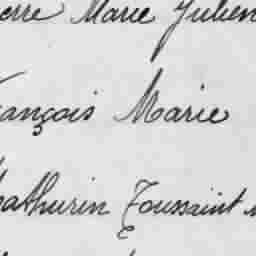 erre Marie Julien
ançois Marie
athurin Toussaint